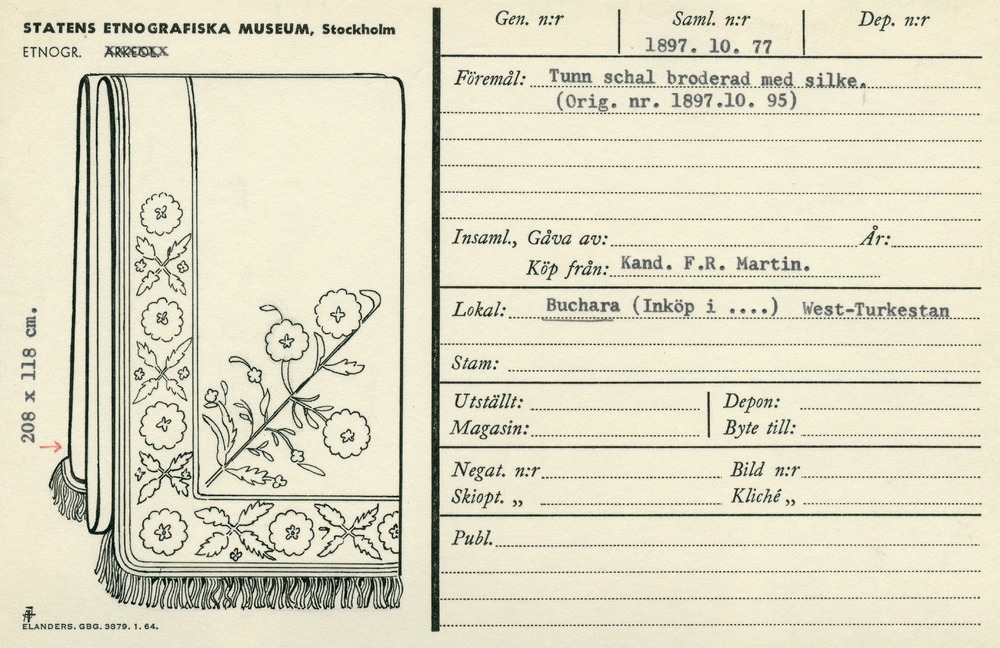 STATENS ETNOGRAFISKA MUSEUM, Stockholm
ETNOGR. ARKEOL.
208 x 118 cm.
ELANDERS. GBG. 3879. 1. 64.
Gen. n:r Saml. n:r Dep. n:r
1897. 10. 77
Föremål: Tunn schal broderad med silke.
(Orig. nr. 1897.10. 95)
Insaml., Gåva av: År:
Köp från: Kand. F.R. Martin.
Lokal: Buchara (Inköp i ....) West-Turkestan
Stam:
Utställt: Depon:
Magasin: Byte till:
Negat. n:r Bild n:r
Skiopt. „ Kliché „
Publ.